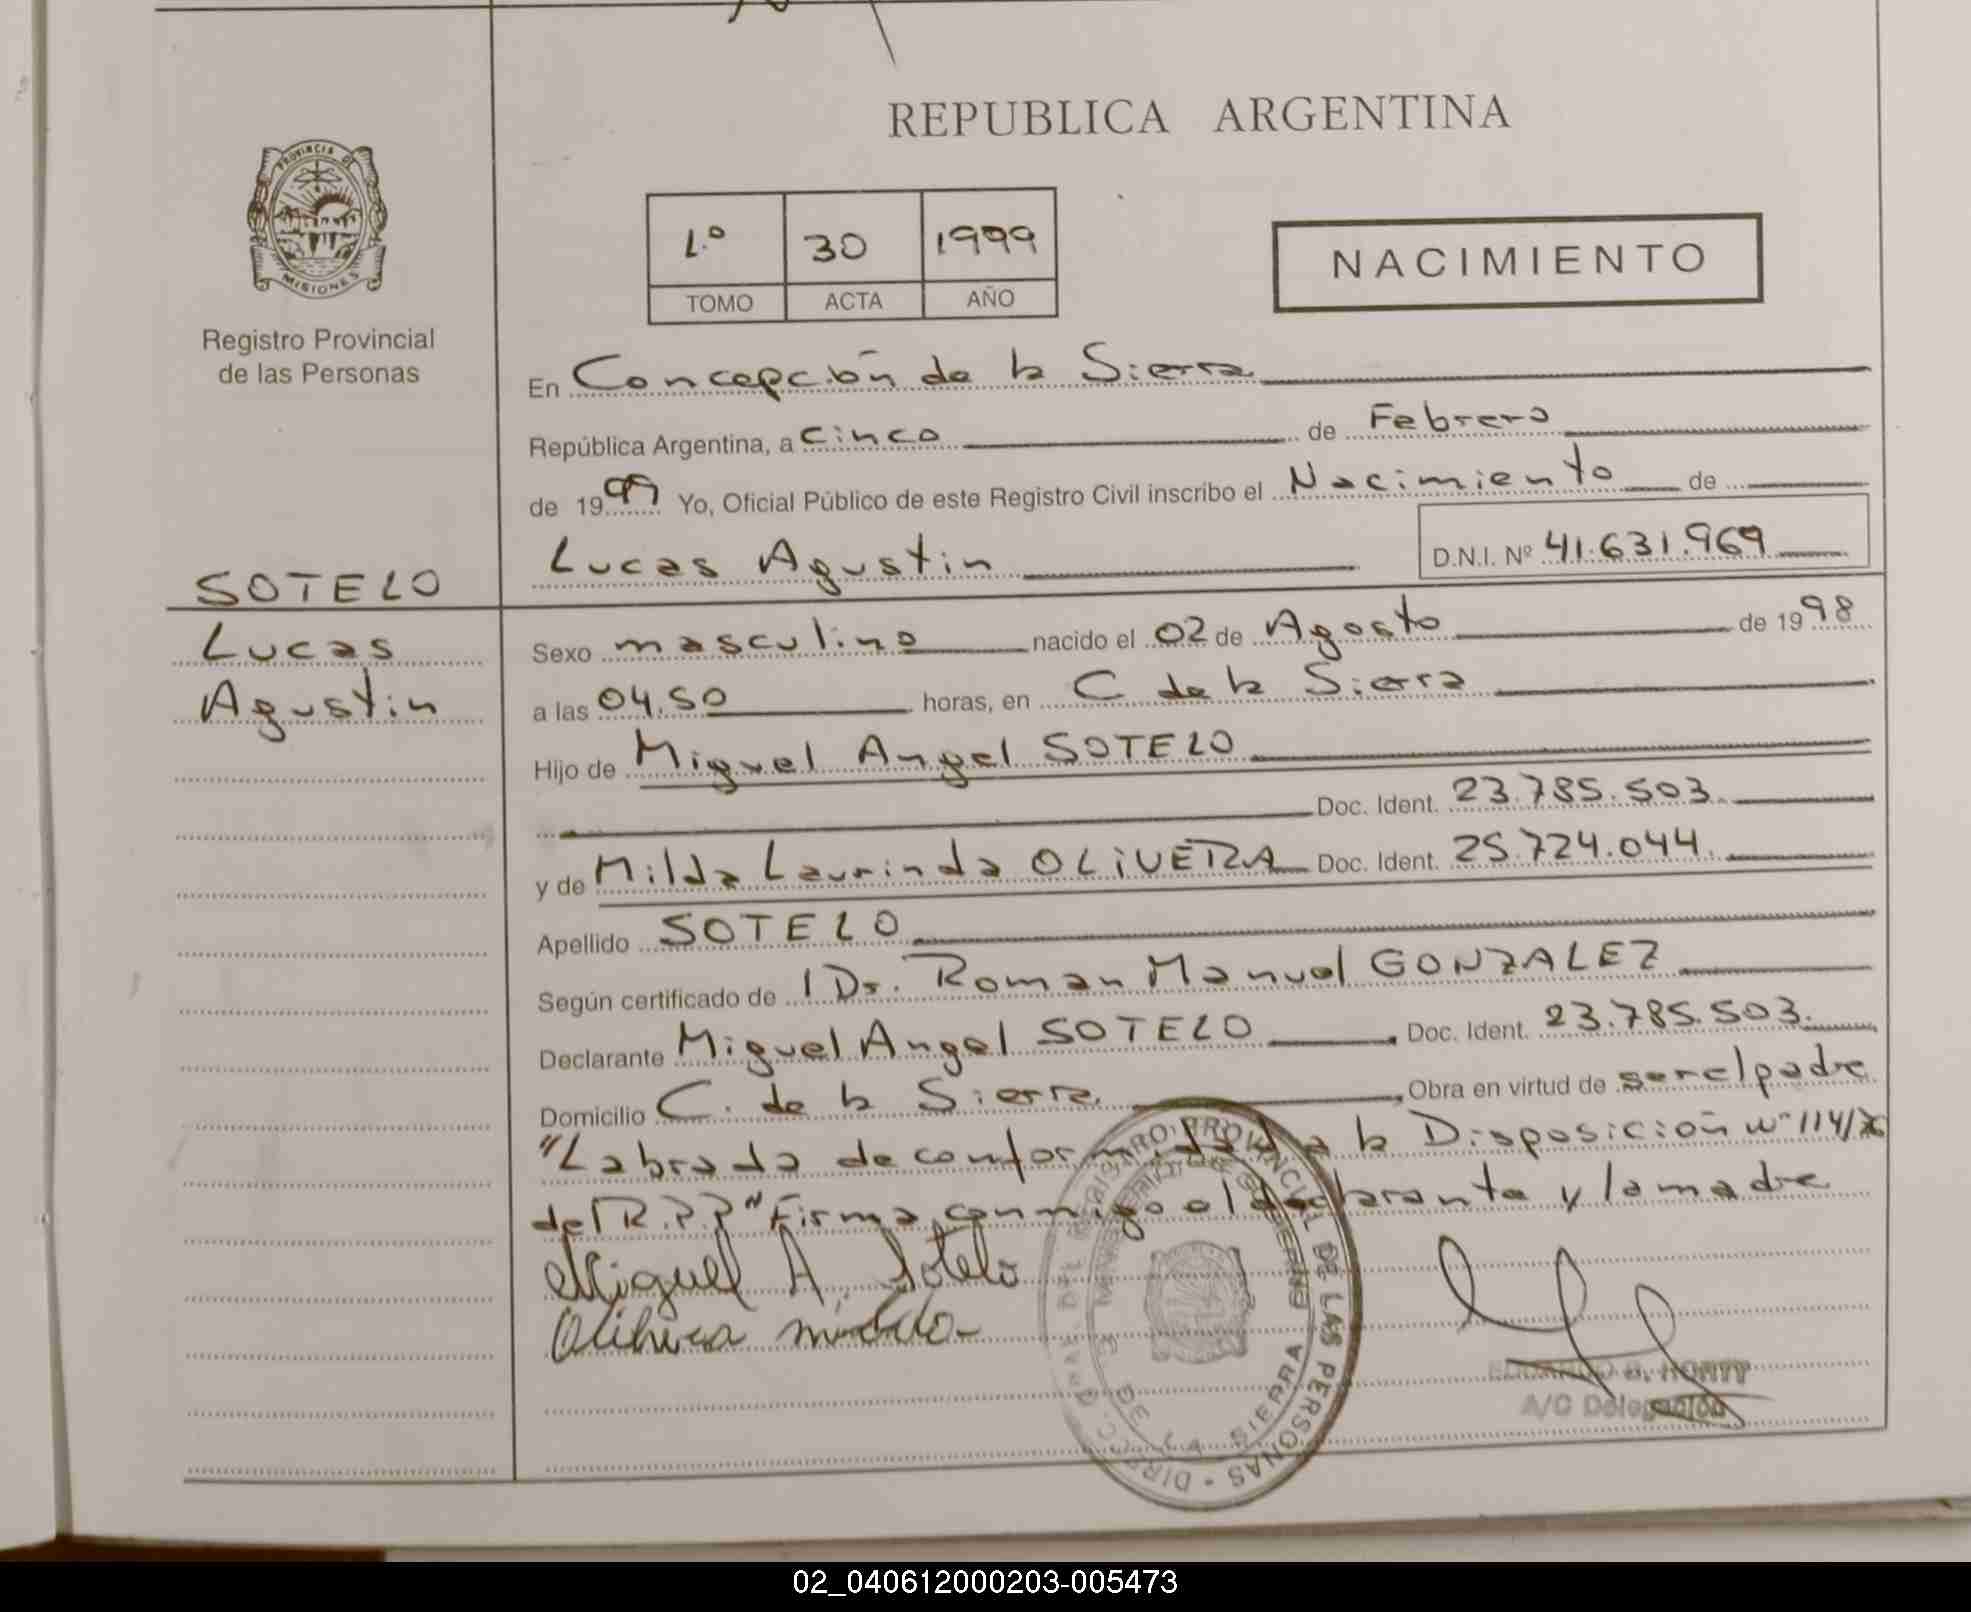 REPUBLICA ARGENTINA
PROVINCIA DE
MISIONES
Registro Provincial
de las Personas
1.º 30 1999
TOMO ACTA AÑO
NACIMIENTO
En Concepción de la Sierra
República Argentina, a cinco de Febrero
de 1999 Yo, Oficial Público de este Registro Civil inscribo el Nacimiento de
Lucas Agustin D.N.I. Nº 41.631.969
SOTELO
Lucas
Agustin
Sexo masculino nacido el 02 de Agosto de 1998
a las 04.50 horas, en C de la Sierra
Hijo de Miguel Angel SOTELO
Doc. Ident. 23.785.503.
y de Milda Laurinda OLIVERA Doc. Ident. 25.724.044.
Apellido SOTELO
Según certificado de Dr. Roman Manuel GONZALEZ
Declarante Miguel Angel SOTELO, Doc. Ident. 23.785.503.
Domicilio C. de la Sierra, Obra en virtud de ser el padre
"Labrada de conformidad a la Disposición Nº 114/
del R.P.P" Firma conmigo el declarante y la madre
Miguel A. Sotelo
DE LAS PERSONAS
DE LA SIERRA
A/C Delegación
02_040612000203-005473